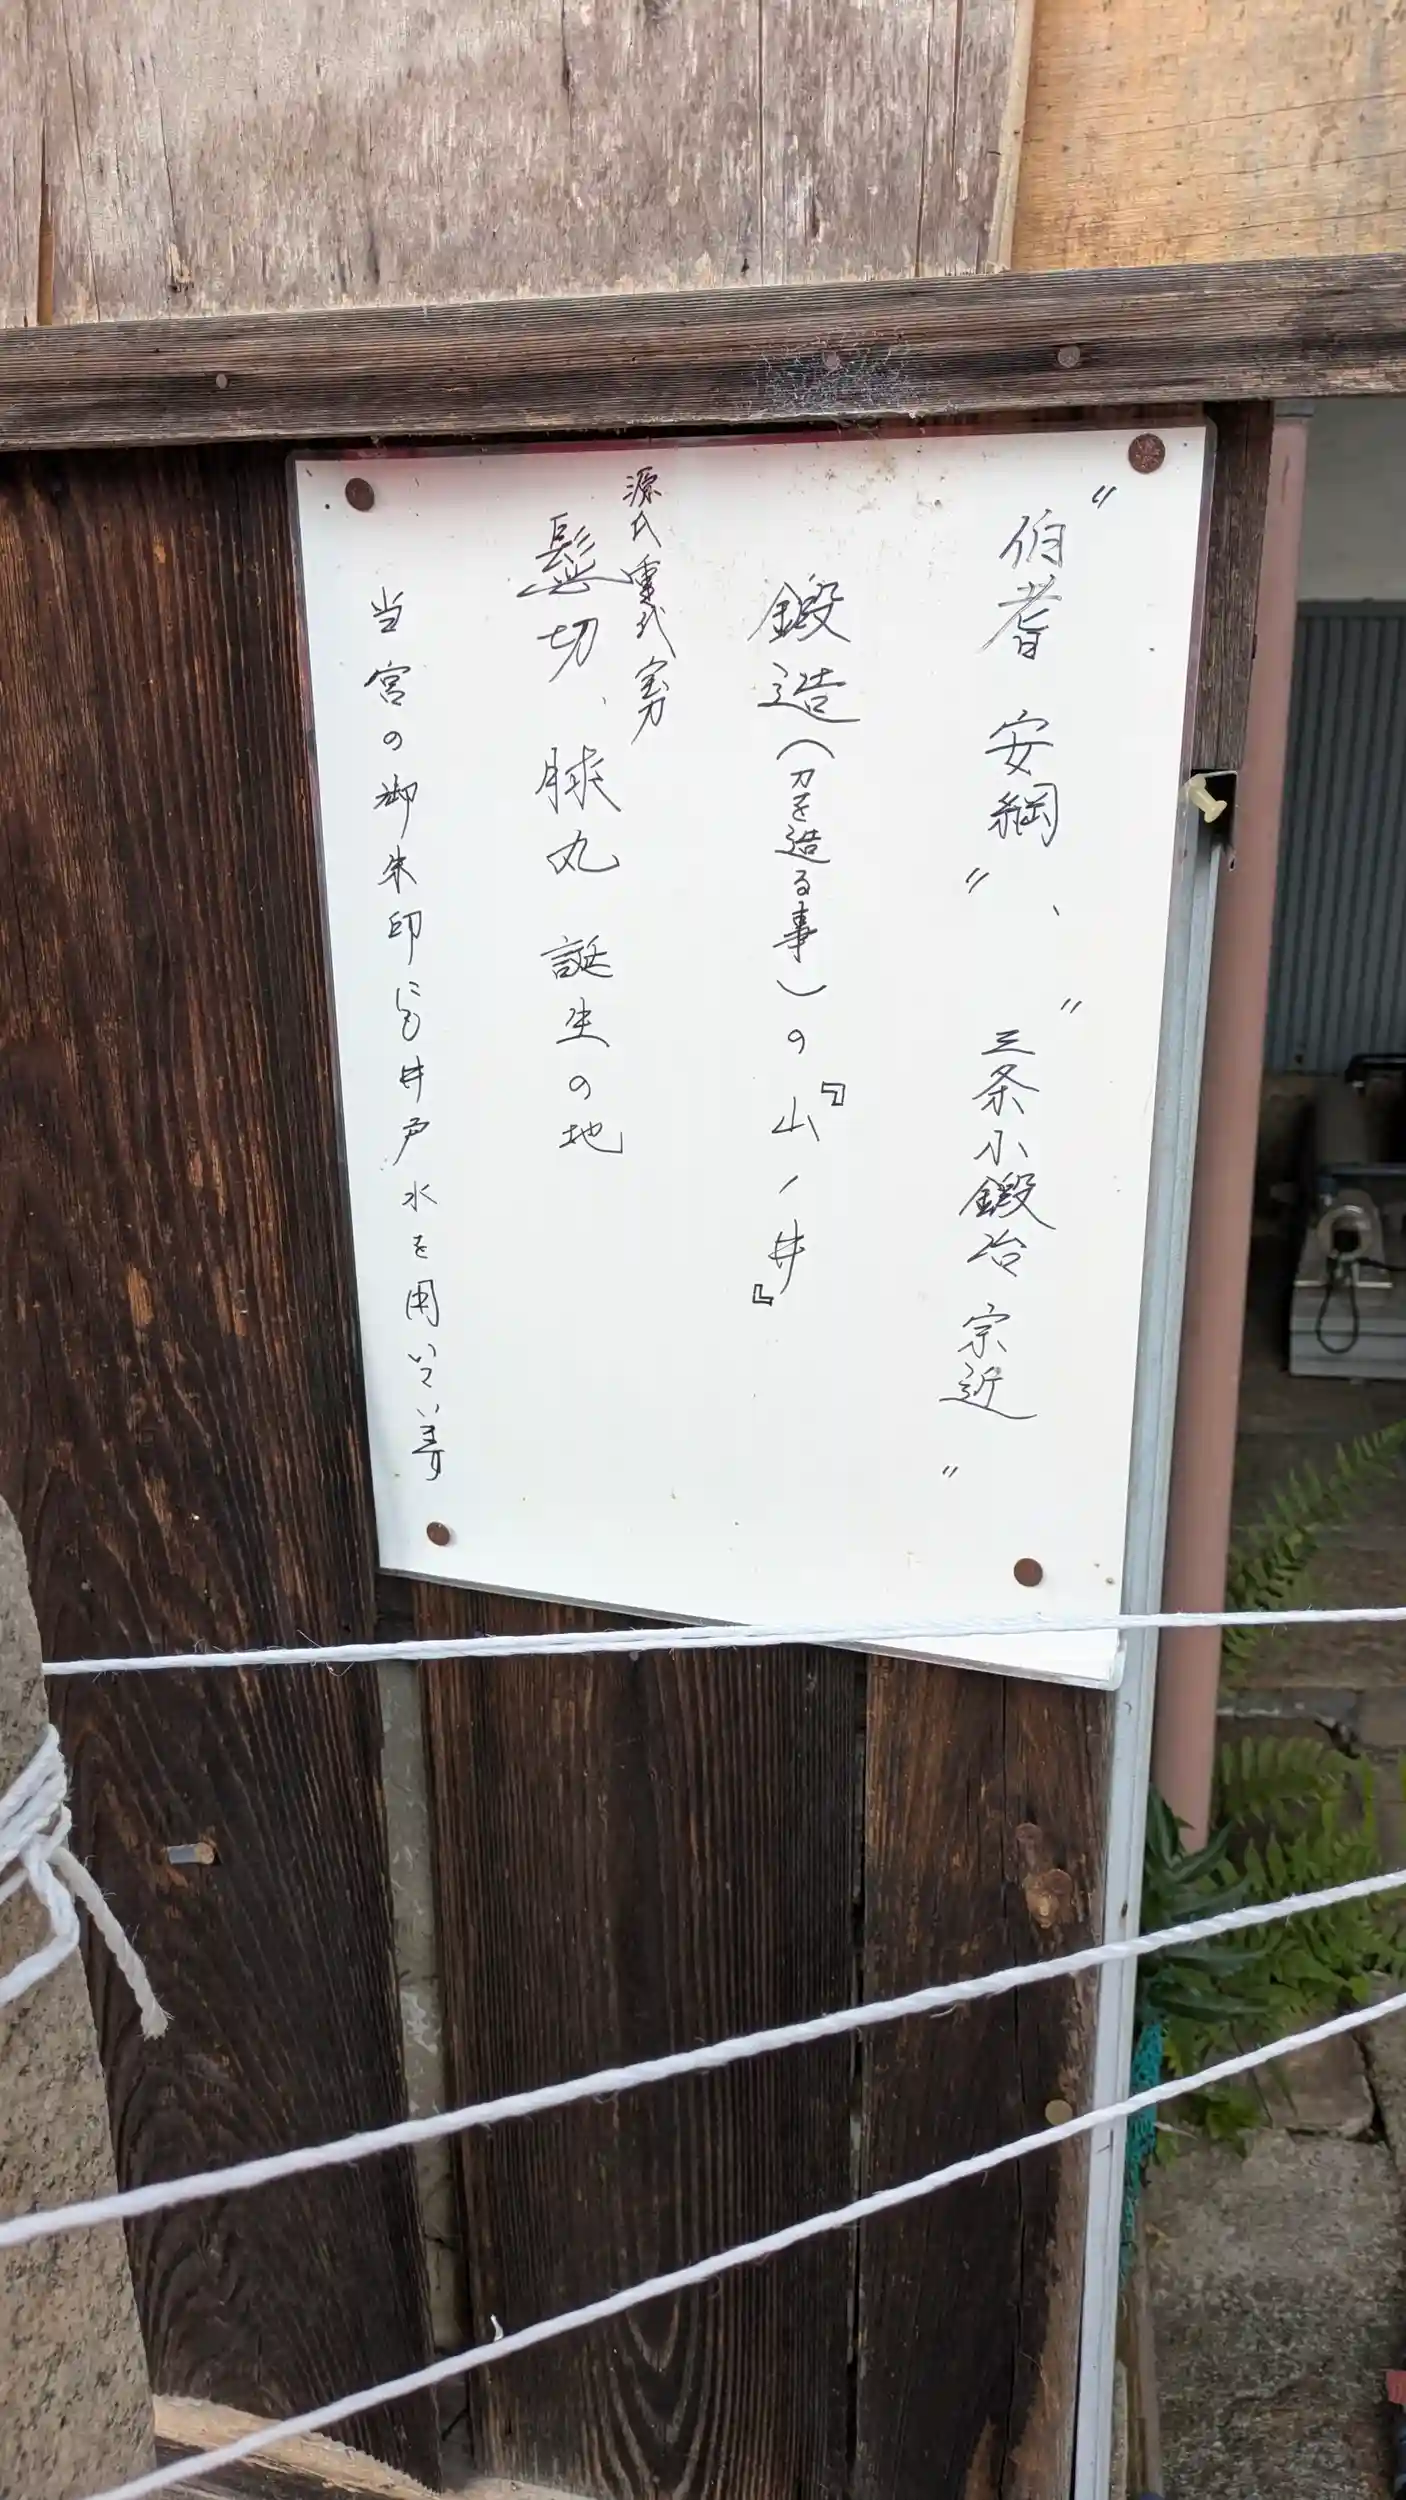 〃伯耆 安綱〃、〃三条小鍛冶 宗近〃
鍛造(刀を造る事)の『山ノ井』
源氏重代宝刀
髭切、膝丸 誕生の地
当宮の御朱印にも井戸水を用いています